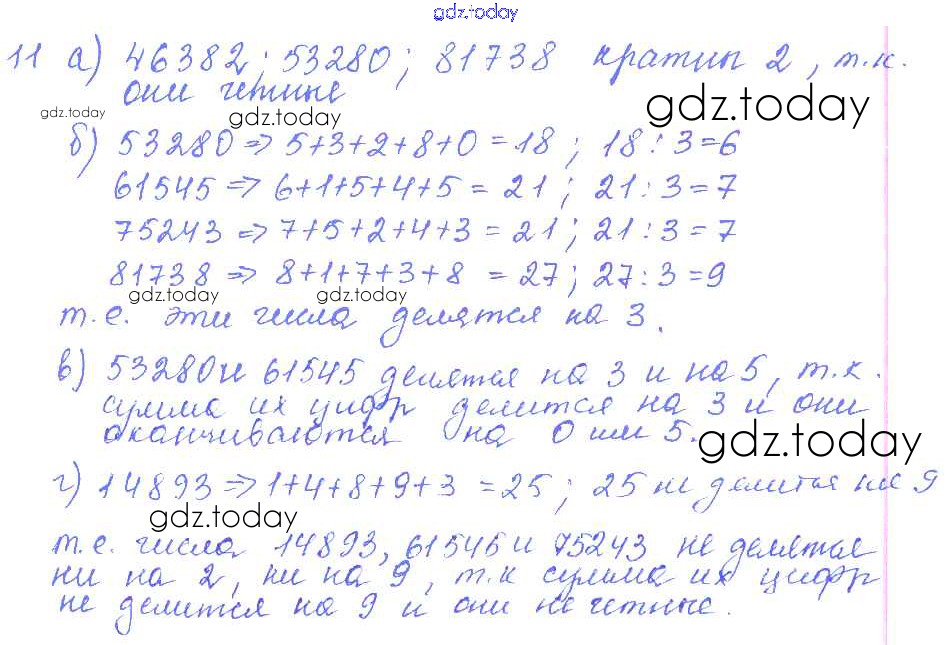 gdz.today
11 а) 46382; 53280; 81738 кратны 2, т.к.
они четные
gdz.today
gdz.today
gdz.today
б) 53280 ⇒ 5+3+2+8+0 = 18; 18:3=6
61545 ⇒ 6+1+5+4+5 = 21; 21:3=7
75243 ⇒ 7+5+2+4+3 = 21; 21:3=7
81738 ⇒ 8+1+7+3+8 = 27; 27:3=9
gdz.today
gdz.today
т.е. эти числа делятся на 3.
в) 53280 и 61545 делятся на 3 и на 5, т.к.
сумма их цифр делится на 3 и они
оканчиваются на 0 или 5.
gdz.today
г) 14893 ⇒ 1+4+8+9+3 = 25; 25 не делится на 9
gdz.today
т.е. числа 14893, 61545 и 75243 не делятся
ни на 2, ни на 9, т.к сумма их цифр
не делится на 9 и они не четные.